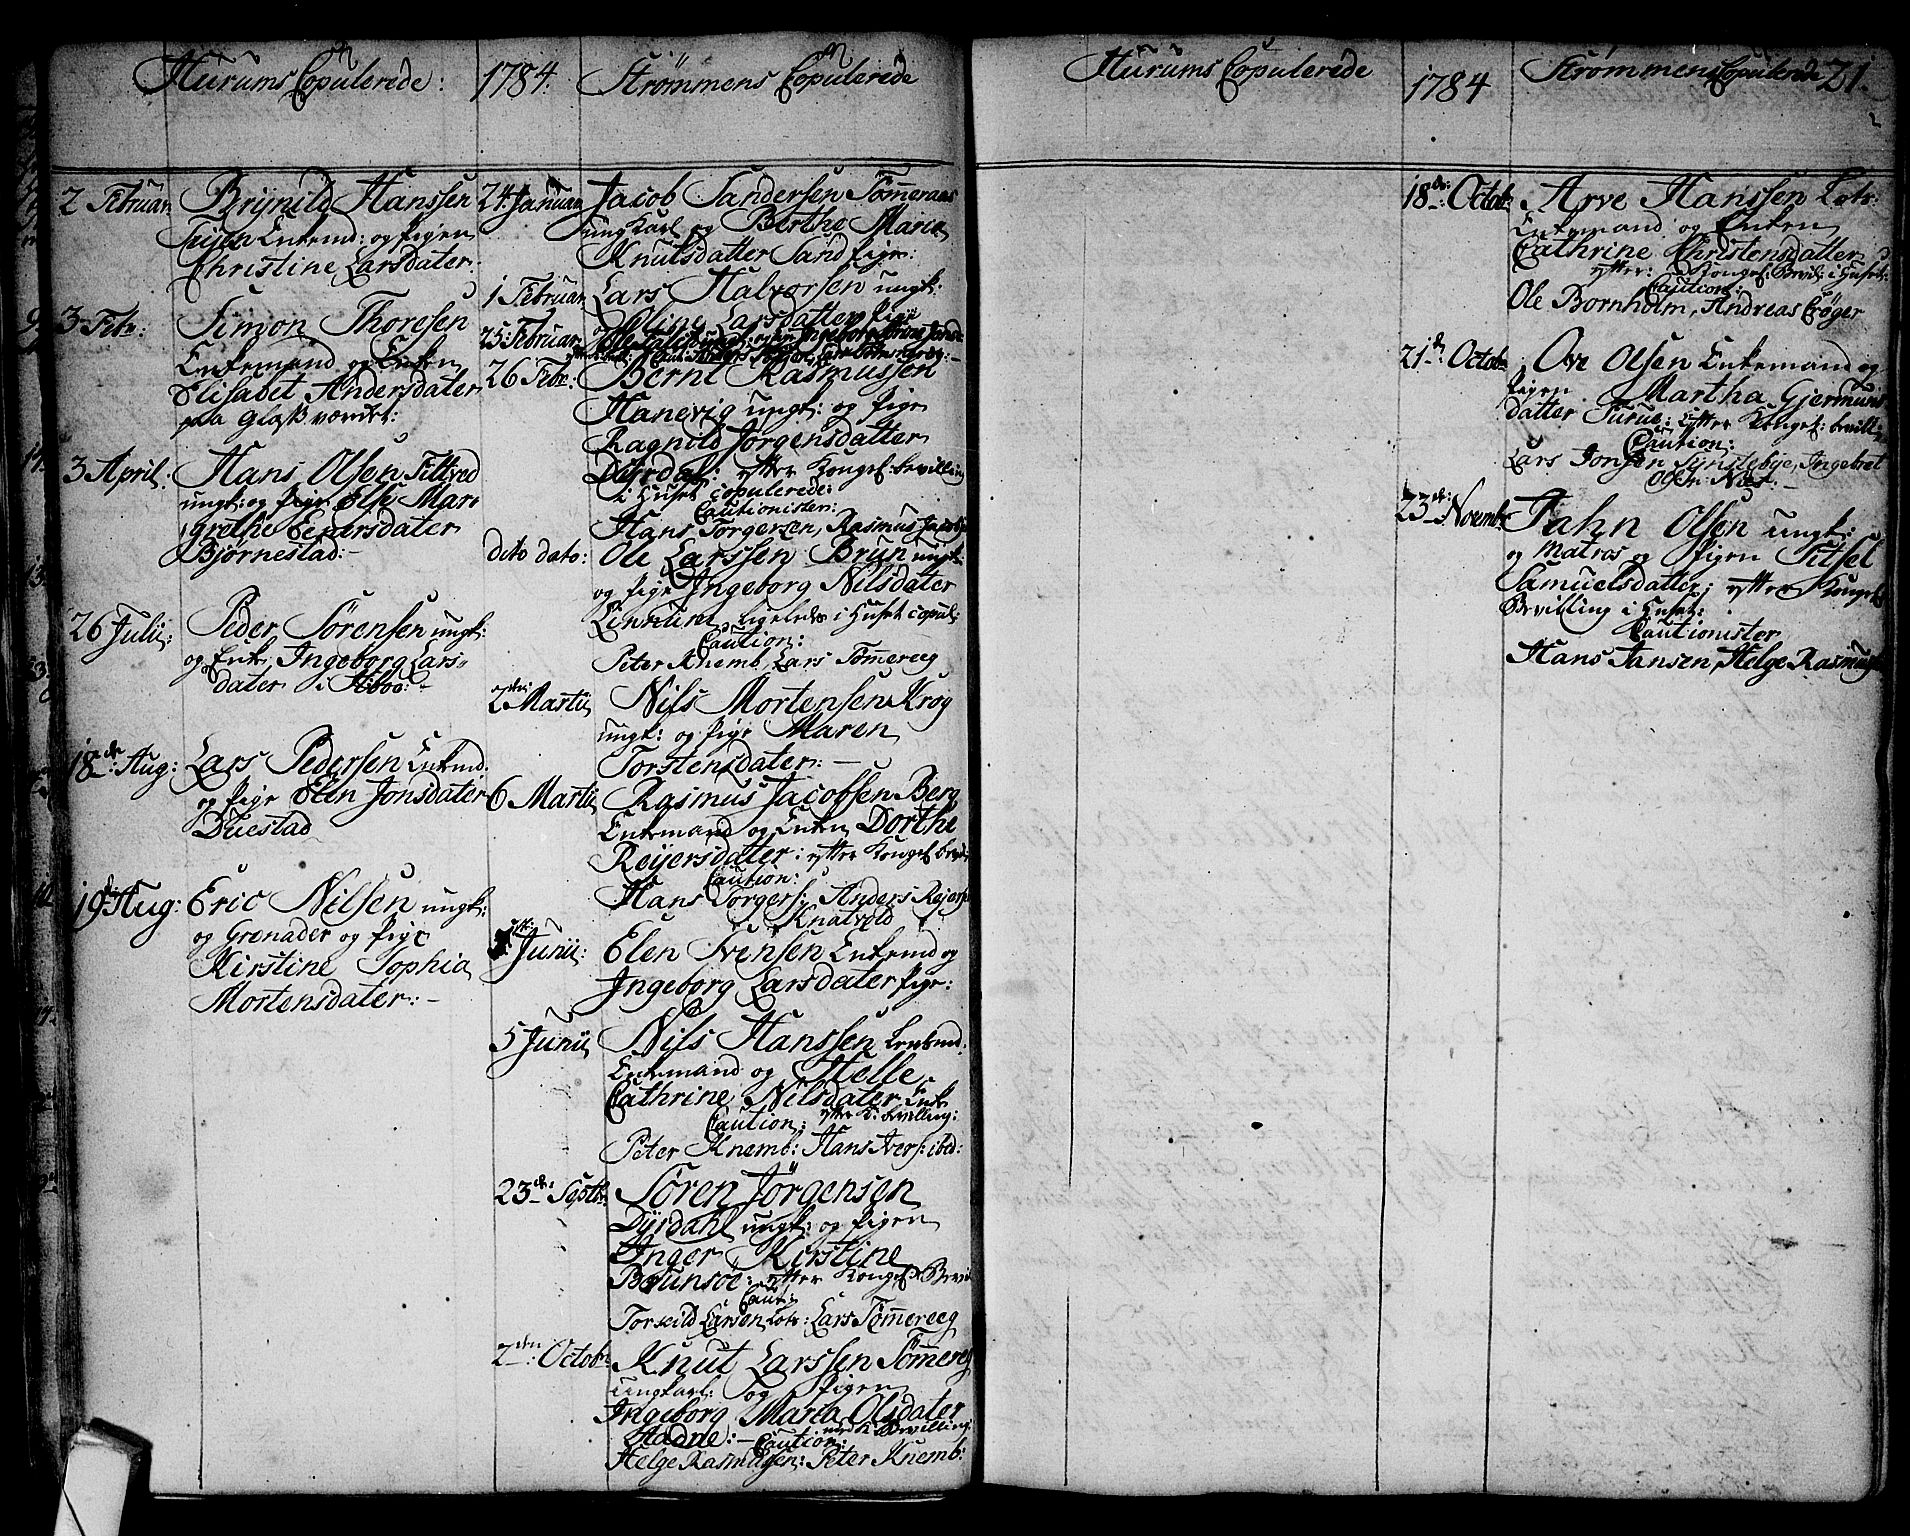 Hurums Copulerede:
2 Februar:
Brijnild Hanssen
Enkemd: og Pigen
Christine Larsdater:
3 Febr:
Simon Thoresen
Enkemand og Enken
Elisabet Andersdater
paa Glassværdet:
3 April:
Hans Olsen
ungk: og Pige Elle Mar-
grethe Enersdater
Bjørnestad:-
26 Julii:
Peder Sørensen ungk:
og Enk. Ingeborg Lars-
dater i
18de Aug:
Lars Pedersen Enkmd.
og Pige Elen Jonsdater
Duestad
19de Aug:
Eric Nilsen ungk:
og Grenader og Pige
Kirstine Sophia
Mortensdater:-
1784. Strømmens Copulerede
24 Januar
Jacob Sandersen Tømeraas
ungkarl og Berthe Maria
Knutsdatter Sand Pige:
1 Februar
Lars Halvorsen ungk:
Oline Larsdatter Pige
25 Februar
26 Febr:
Bernt Rasmussen
Hanevig ungk: og Pige
Ragnild Jørgensdatter
Dijrdal: ytter Konges: bevilling
i Huset copulerede:
Cautionister:
Hans Torgersen, Rasmus Jacobs
dito dato:
Ole Larssen Brun ungk:
og Pige Ingeborg Nilsdater
Linnuset ligeledes i Huset copul:
Caution:
Peter Knemb, Lars Tømereeg
2den Martii
Nils Mortensen Krog
ungk: og Pige Maren
Torstensdater:-
6 Martii
Rasmus Jacobsen Berg
Enkemand og Enken Dorthe
Reijersdatter: ytter Konges bevil:
Caution:
Hans Torgers: Anders Rejers
Knatvold
Junii:
Elen Svensen Enkemd og
Ingeborg Larsdater Pige:
5 Junii
Nils Hanssen
Enkemand og Helle
Cathrine Nilsdater Enk
ytter K: bevilling:
Caution:
Peter Knemb: Hans Ivers: ibid:
23de Septbr
Søren Jørgensen
Dijrdahl ungk: og Pigen
Inger Kirstine
Brunsoe: ytter Konges Bevil
Caut:
Torskild Larsen Lots: Lars Tømereeg
2den October
Knut Larssen Tømereg
ungkarl: og Pigen
Ingeborg Maria Olsdater
Stadne:- med K: Bevilling
Caution:
Helge Rasmusen: Peter Knemb:
Hurums Copulerede
1784 Strømmens Copulerede 21.
18de Octob:
Arve Hanssen Lots:
Enkemand og Enken
Cathrine Christensdatter
ytter: Konges: Bevil: i Huset:
Caution:
Ole Bornholm, Andreas Crøger
21de Octob
Ove Olsen Enkemand og
Pigen Martha Gjermunds
datter Turue: ytter Konges: bevill:
Caution:
Lars Jonsen Synstebye, Ingebret
Olsen Næs.-
23de Novembr
Jahn Olsen ungk:
og Matros og Pigen Sitsel
Samuelsdatter; ytter Konges
Bevilling i Huset:
Cautionister
Hans Jansen, Helge Rasmus